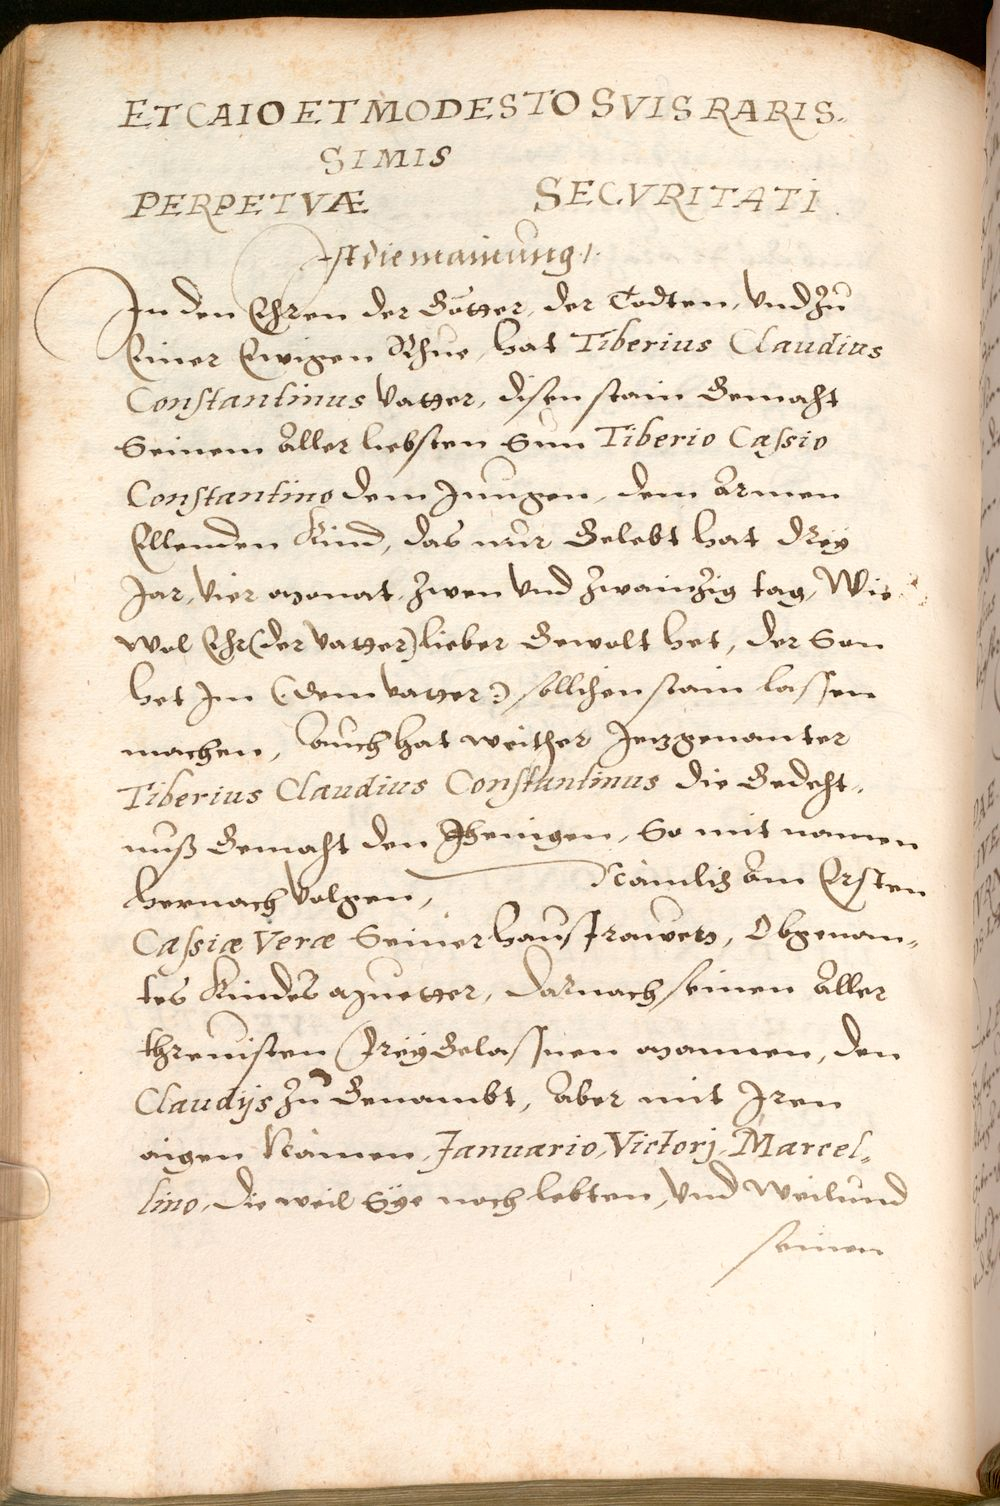 ET CAIO ET MODESTO SVIS RARIS-
SIMIS
PERPETVÆ SECVRITATI.
Ist die mainung/.
In den Ehren der Götter, der Todten, Und zu
Einer Ewigen Rhue, hat Tiberius Claudius
Constantinus Vatter, disen stain Gemacht
Seinem Aller liebsten Sun Tiberio Cassio
Constantino dem Jungen, dem Armen
Ellenden Kind, das nur Gelebt hat drey
Jar, Vier Monat, Zwen Und Zwainzig tag, Wie
Wol Ehr (der Vatter) lieber Gewolt het, der Son
het Im (: dem Vatter :) sollichen stain lassen
machen, Auch hat weither Jezgenanter
Tiberius Claudius Constantinus die Gedecht-
nuß Gemacht den Jhenigen, So mit namen
hernach Volgen, Nämlich Am Ersten
Cassiæ Veræ Seiner hausfrawen, Obgenan-
tes Kindes Muetter, Darnach seinen Aller
threuisten Frey Gelassnen Mannen, den
Claudijs Zu Genambt, Aber mit Iren
aigen Namen, Januario, Victorj, Marcel-
lino, Die weil Sye noch lebten, Und Weilund
seinen